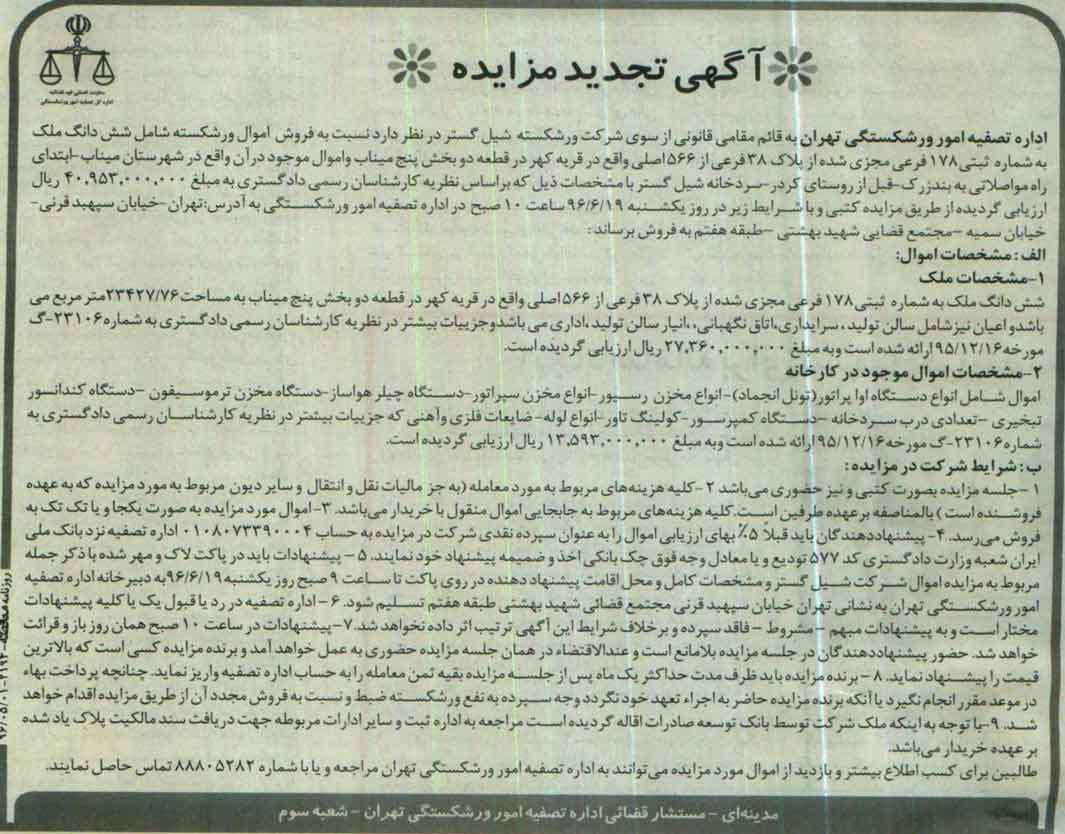 آگهی تجدید مزایده
معاونت قضائی قوه قضائیه
اداره کل تصفیه امور ورشکستگی
اداره تصفیه امور ورشکستگی تهران به قائم مقامی قانونی از سوی شرکت ورشکسته شیل گستر در نظر دارد نسبت به فروش اموال ورشکسته شامل شش دانگ ملک
به شماره ثبتی ۱۷۸ فرعی مجزی شده از پلاک ۳۸ فرعی از ۵۶۶ اصلی واقع در قریه کهر در قطعه دو بخش پنج میناب واموال موجود درآن واقع در شهرستان میناب-ابتدای
راه مواصلاتی به بندزرک-قبل از روستای کردر-سردخانه شیل گستر با مشخصات ذیل که براساس نظریه کارشناسان رسمی دادگستری به مبلغ ۴۰,۹۵۳,۰۰۰,۰۰۰ ریال
ارزیابی گردیده از طریق مزایده کتبی و با شرایط زیر در روز یکشنبه ۹۶/۶/۱۹ ساعت ۱۰ صبح در اداره تصفیه امور ورشکستگی به آدرس:تهران-خیابان سپهبد قرنی-
خیابان سمیه -مجتمع قضایی شهید بهشتی -طبقه هفتم به فروش برساند:
الف: مشخصات اموال:
۱-مشخصات ملک
شش دانگ ملک به شماره ثبتی ۱۷۸ فرعی مجزی شده از پلاک ۳۸ فرعی از ۵۶۶ اصلی واقع در قریه کهر در قطعه دو بخش پنج میناب به مساحت ۲۳۴۲۷/۷۶متر مربع می
باشدو اعیان نیزشامل سالن تولید، سرایداری،اتاق نگهبانی،،انبار سالن تولید،اداری می باشدوجزییات بیشتر در نظریه کارشناسان رسمی دادگستری به شماره ۲۳۱۰۶-گ
مورخه ۹۵/۱۲/۱۶ ارائه شده است وبه مبلغ ۲۷,۳۶۰,۰۰۰,۰۰۰ ریال ارزیابی گردیده است.
۲-مشخصات اموال موجود در کارخانه
اموال شامل انواع دستگاه اوا پراتور(تونل انجماد)-انواع مخزن رسیور-انواع مخزن سپراتور-دستگاه چیلر هواساز-دستگاه مخزن ترموسیفون -دستگاه کندانسور
تبخیری -تعدادی درب سردخانه -دستگاه کمپرسور-کولینگ تاور-انواع لوله-ضایعات فلزی وآهنی که جزییات بیشتر در نظریه کارشناسان رسمی دادگستری به
شماره۲۳۱۰۶-گ مورخه ۹۵/۱۲/۱۶ ارائه شده است وبه مبلغ ۱۳,۵۹۳,۰۰۰,۰۰۰ ریال ارزیابی گردیده است.
ب: شرایط شرکت در مزایده:
۱-جلسه مزایده بصورت کتبی و نیز حضوری می‌باشد ۲-کلیه هزینه‌های مربوط به مورد معامله (به جز مالیات نقل و انتقال و سایر دیون مربوط به مورد مزایده که به عهده
فروشنده است) بالمناصفه بر عهده طرفین است.کلیه هزینه‌های مربوط به جابجایی اموال منقول با خریدار می‌باشد. ۳-اموال مورد مزایده به صورت یکجا و یا تک تک به
فروش می‌رسد. ۴- پیشنهاددهندگان باید قبلاً ۵٪ بهای ارزیابی اموال را به عنوان سپرده نقدی شرکت در مزایده به حساب ۰۱۰۸۰۷۳۳۹۰۰۰۴ اداره تصفیه نزد بانک ملی
ایران شعبه وزارت دادگستری کد ۵۷۷ تودیع و یا معادل وجه فوق چک بانکی اخذ و ضمیمه پیشنهاد خود نمایند. ۵- پیشنهادات باید در پاکت لاک و مهر شده با ذکر جمله
مربوط به مزایده اموال شرکت شیل گستر و مشخصات کامل و محل اقامت پیشنهاد دهنده در روی پاکت تا ساعت ۹ صبح روز یکشنبه ۹۶/۶/۱۹ به دبیرخانه اداره تصفیه
امور ورشکستگی تهران به نشانی تهران خیابان سپهبد قرنی مجتمع قضائی شهید بهشتی طبقه هفتم تسلیم شود. ۶- اداره تصفیه در رد یا قبول یک یا کلیه پیشنهادات
مختار است و به پیشنهادات مبهم - مشروط - فاقد سپرده و برخلاف شرایط این آگهی ترتیب اثر داده نخواهد شد. ۷- پیشنهادات در ساعت ۱۰ صبح همان روز باز و قرائت
خواهد شد. حضور پیشنهاددهندگان در جلسه مزایده بلامانع است و عندالاقتضاء در همان جلسه مزایده حضوری به عمل خواهد آمد و برنده مزایده کسی است که بالاترین
قیمت را پیشنهاد نماید. ۸- برنده مزایده باید ظرف مدت حداکثر یک ماه پس از جلسه مزایده بقیه ثمن معامله را به حساب اداره تصفیه واریز نماید. چنانچه پرداخت بهاء
در موعد مقرر انجام نگیرد یا آنکه برنده مزایده حاضر به اجراء تعهد خود نگردد وجه سپرده به نفع ورشکسته ضبط و نسبت به فروش مجدد آن از طریق مزایده اقدام خواهد
شد. ۹-با توجه به اینکه ملک شرکت توسط بانک توسعه صادرات اقاله گردیده است مراجعه به اداره ثبت و سایر ادارات مربوطه جهت دریافت سند مالکیت پلاک یاد شده
بر عهده خریدار می‌باشد.
طالبین برای کسب اطلاع بیشتر و بازدید از اموال مورد مزایده می‌توانند به اداره تصفیه امور ورشکستگی تهران مراجعه و یا با شماره ۸۸۸۰۵۲۸۲ تماس حاصل نمایند.
مدینه‌ای - مستشار قضائی اداره تصفیه امور ورشکستگی تهران - شعبه سوم